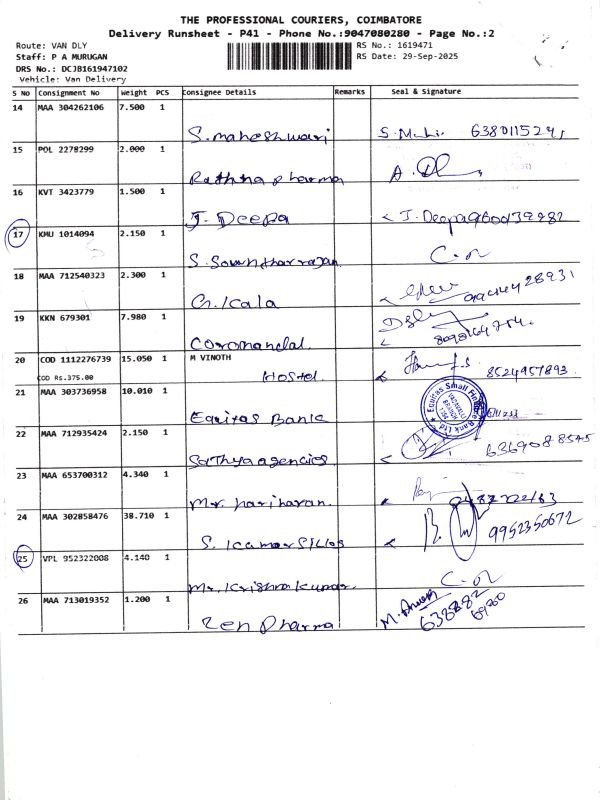 THE PROFESSIONAL COURIERS, COIMBATORE
Delivery Runsheet - P41 - Phone No.:9047080280 - Page No.:2
Route: VAN DLY
RS No.: 1619471
Staff: P A MURUGAN
RS Date: 29-Sep-2025
DRS No.: DCJB161947102
Vehicle: Van Delivery
S No Consignment No Weight PCS Consignee Details Remarks Seal & Signature
14 MAA 304262106 7.500 1
S. maheshwari
15 POL 2278299 2.000 1
Rathna pharma
16 KVT 3423779 1.500 1
J. Deepa J. Deepa
17 KMU 1014094 2.150 1
S. Sountharrajan
18 MAA 712540323 2.300 1
G. Kala
19 KKN 679301 7.980 1
Coromandal
20 COD 1112276739 15.050 1 M VINOTH
COD Rs.375.00 Hostel 8524957893
21 MAA 303736958 10.010 1
Equitas Bank Equitas Small Finance Bank Ltd
22 MAA 712935424 2.150 1
Sathya agencies 6369088545
23 MAA 653700312 4.340 1
Mr. hariharan
24 MAA 302858476 38.710 1
S. Kumar Silks 9952350672
25 VPL 952322008 4.140 1
Mr. Krishnakumar
26 MAA 713019352 1.200 1
Zen Pharma